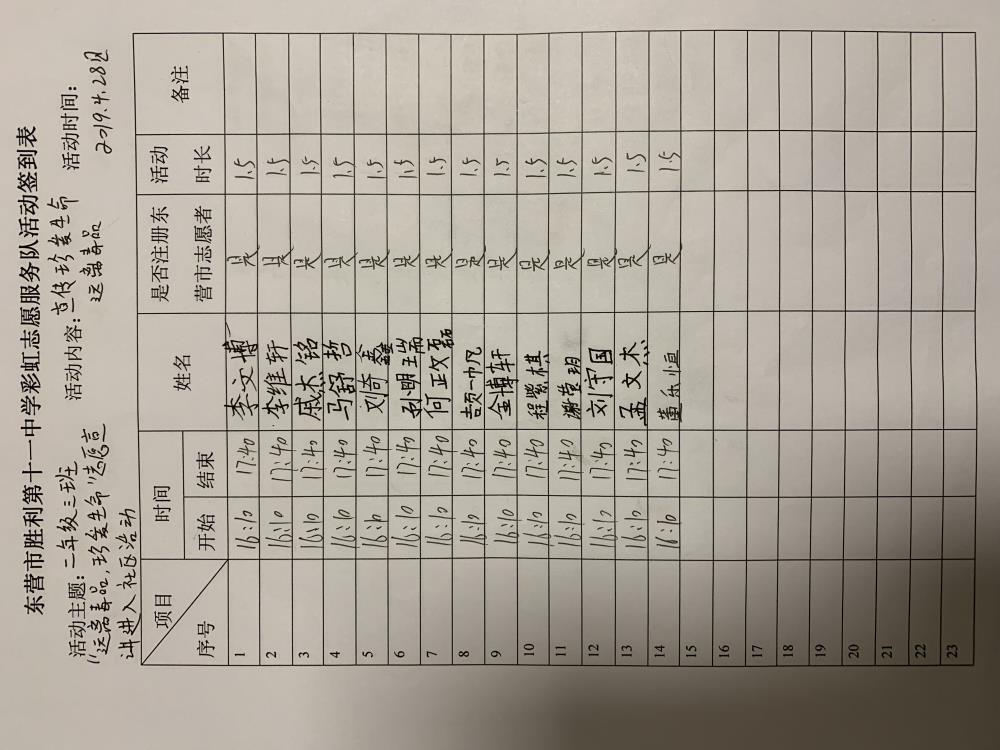 东营市胜利第十一中学彩虹志愿服务队活动签到表
活动主题：二年级三班 活动内容：宣传珍爱生命 活动时间：
"远离毒品，珍爱生命"志愿宣 远离毒品 2019.4.28日
讲进入社区活动
项目 时间 姓名 是否注册东 活动 备注
序号 开始 结束 营市志愿者 时长
1 16:10 17:40 李文博 是 1.5
2 16:10 17:40 李维轩 是 1.5
3 16:10 17:40 戚杰铭 是 1.5
4 16:10 17:40 马舒哲 是 1.5
5 16:10 17:40 刘奇鑫 是 1.5
6 16:10 17:40 孙明瑞 是 1.5
7 16:10 17:40 何政磊 是 1.5
8 16:10 17:40 颉一帆 是 1.5
9 16:10 17:40 金博轩 是 1.5
10 16:10 17:40 程紫棋 是 1.5
11 16:10 17:40 谢棠玥 是 1.5
12 16:10 17:40 刘守国 是 1.5
13 16:10 17:40 孟文杰 是 1.5
14 16:10 17:40 董乐恒 是 1.5
15
16
17
18
19
20
21
22
23